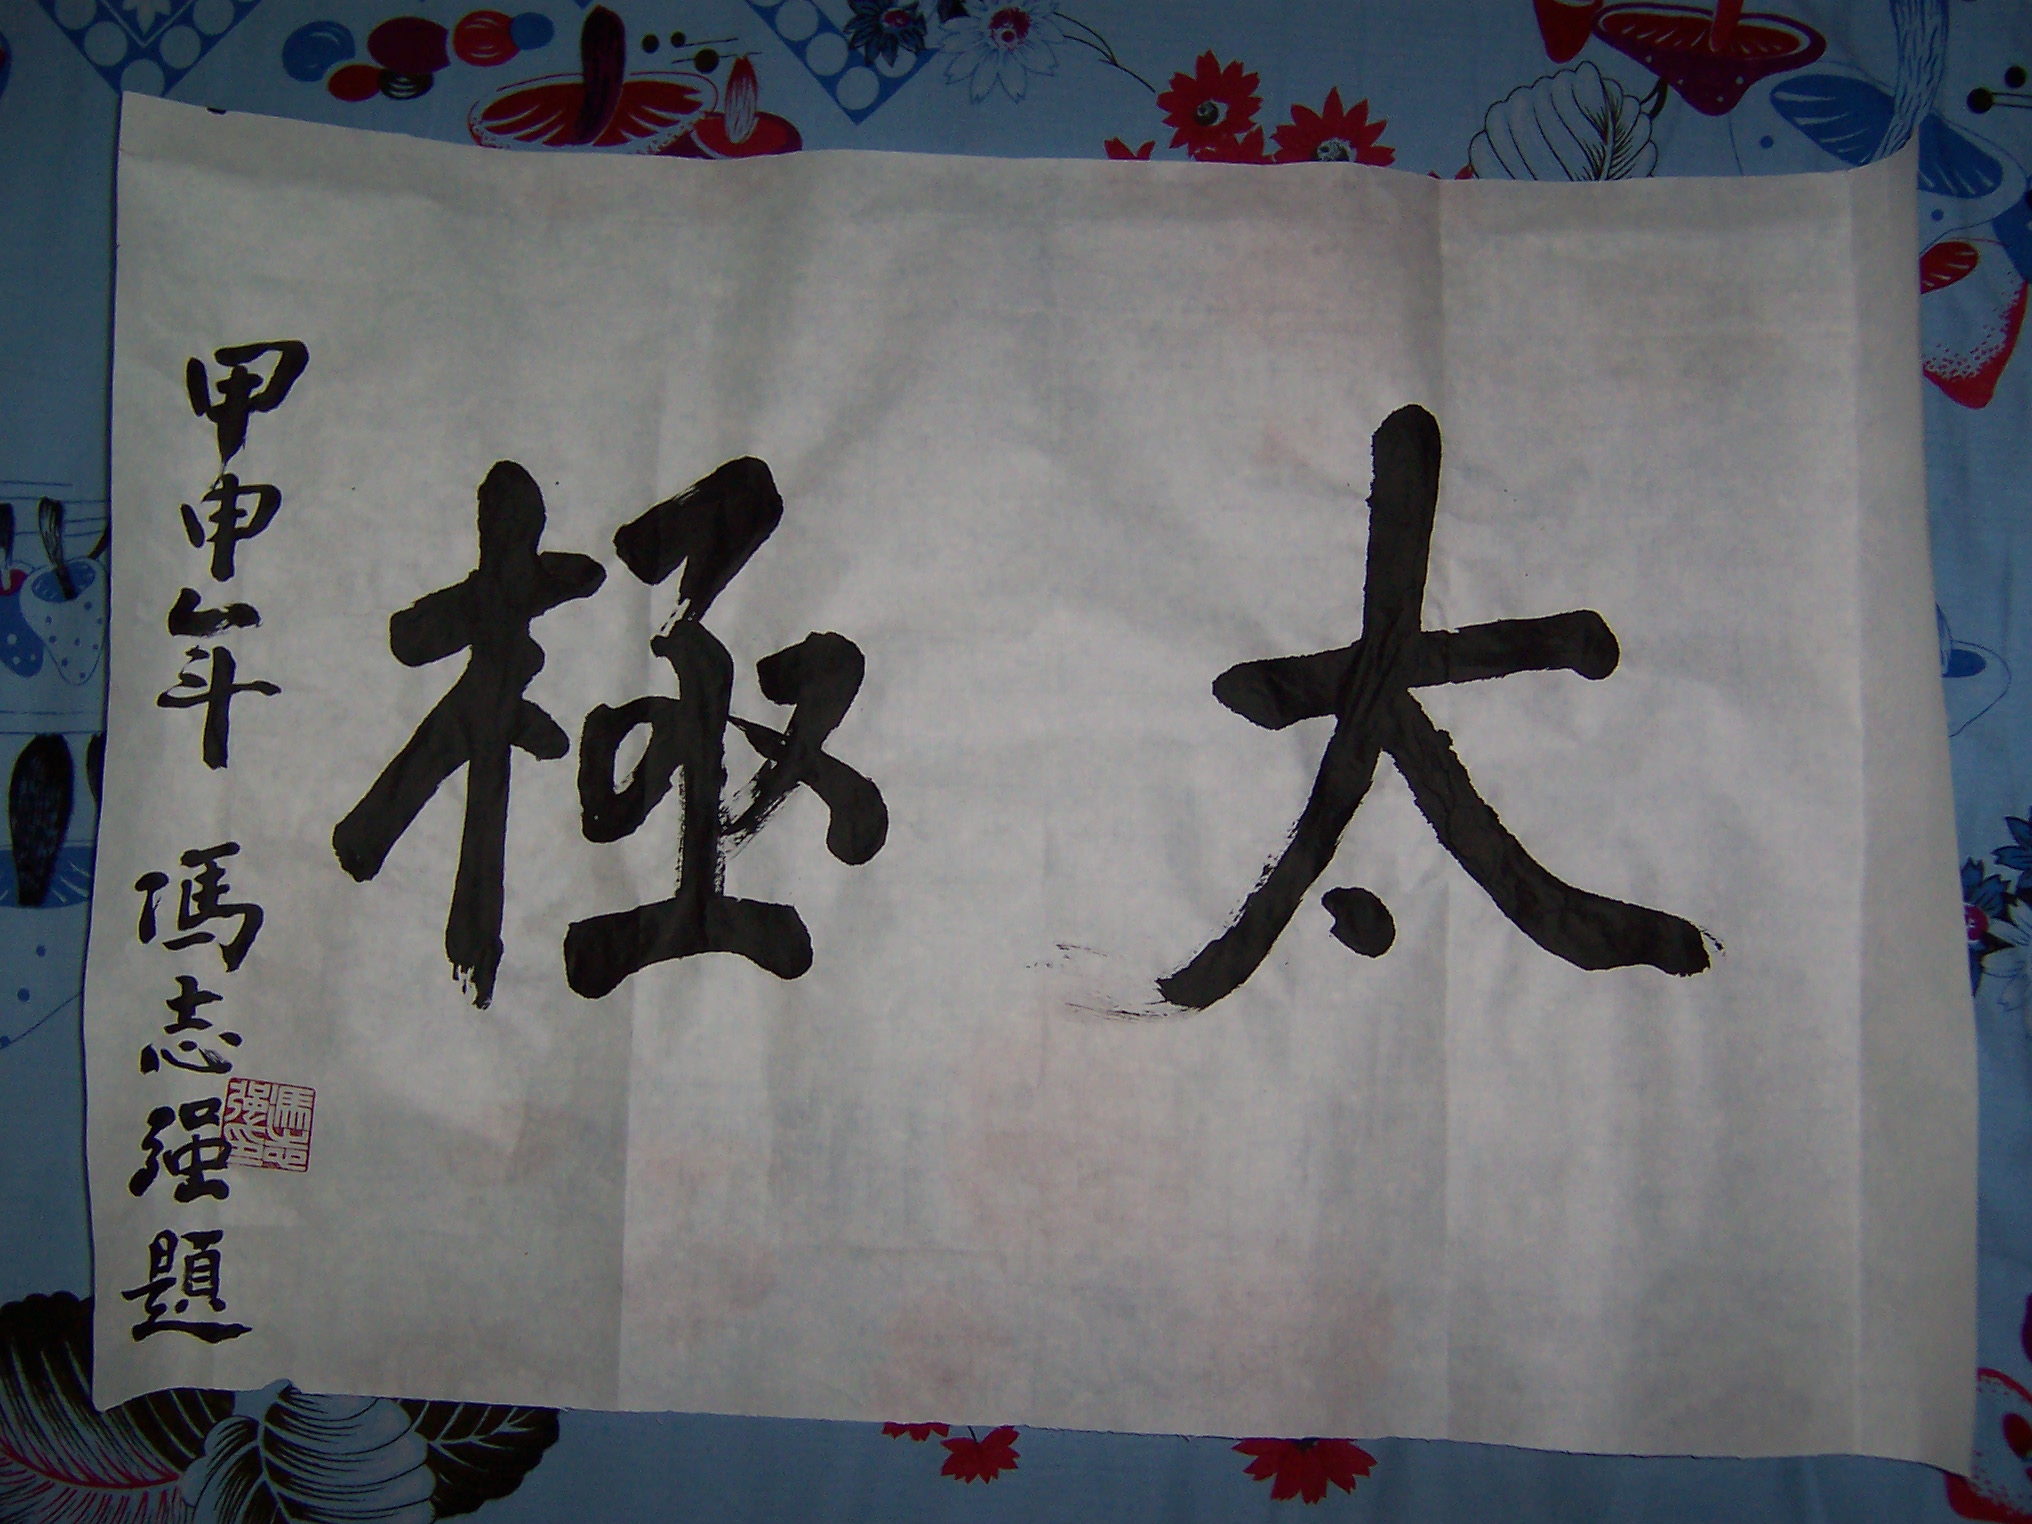 太極
甲申年 馮志强題
馮志强印